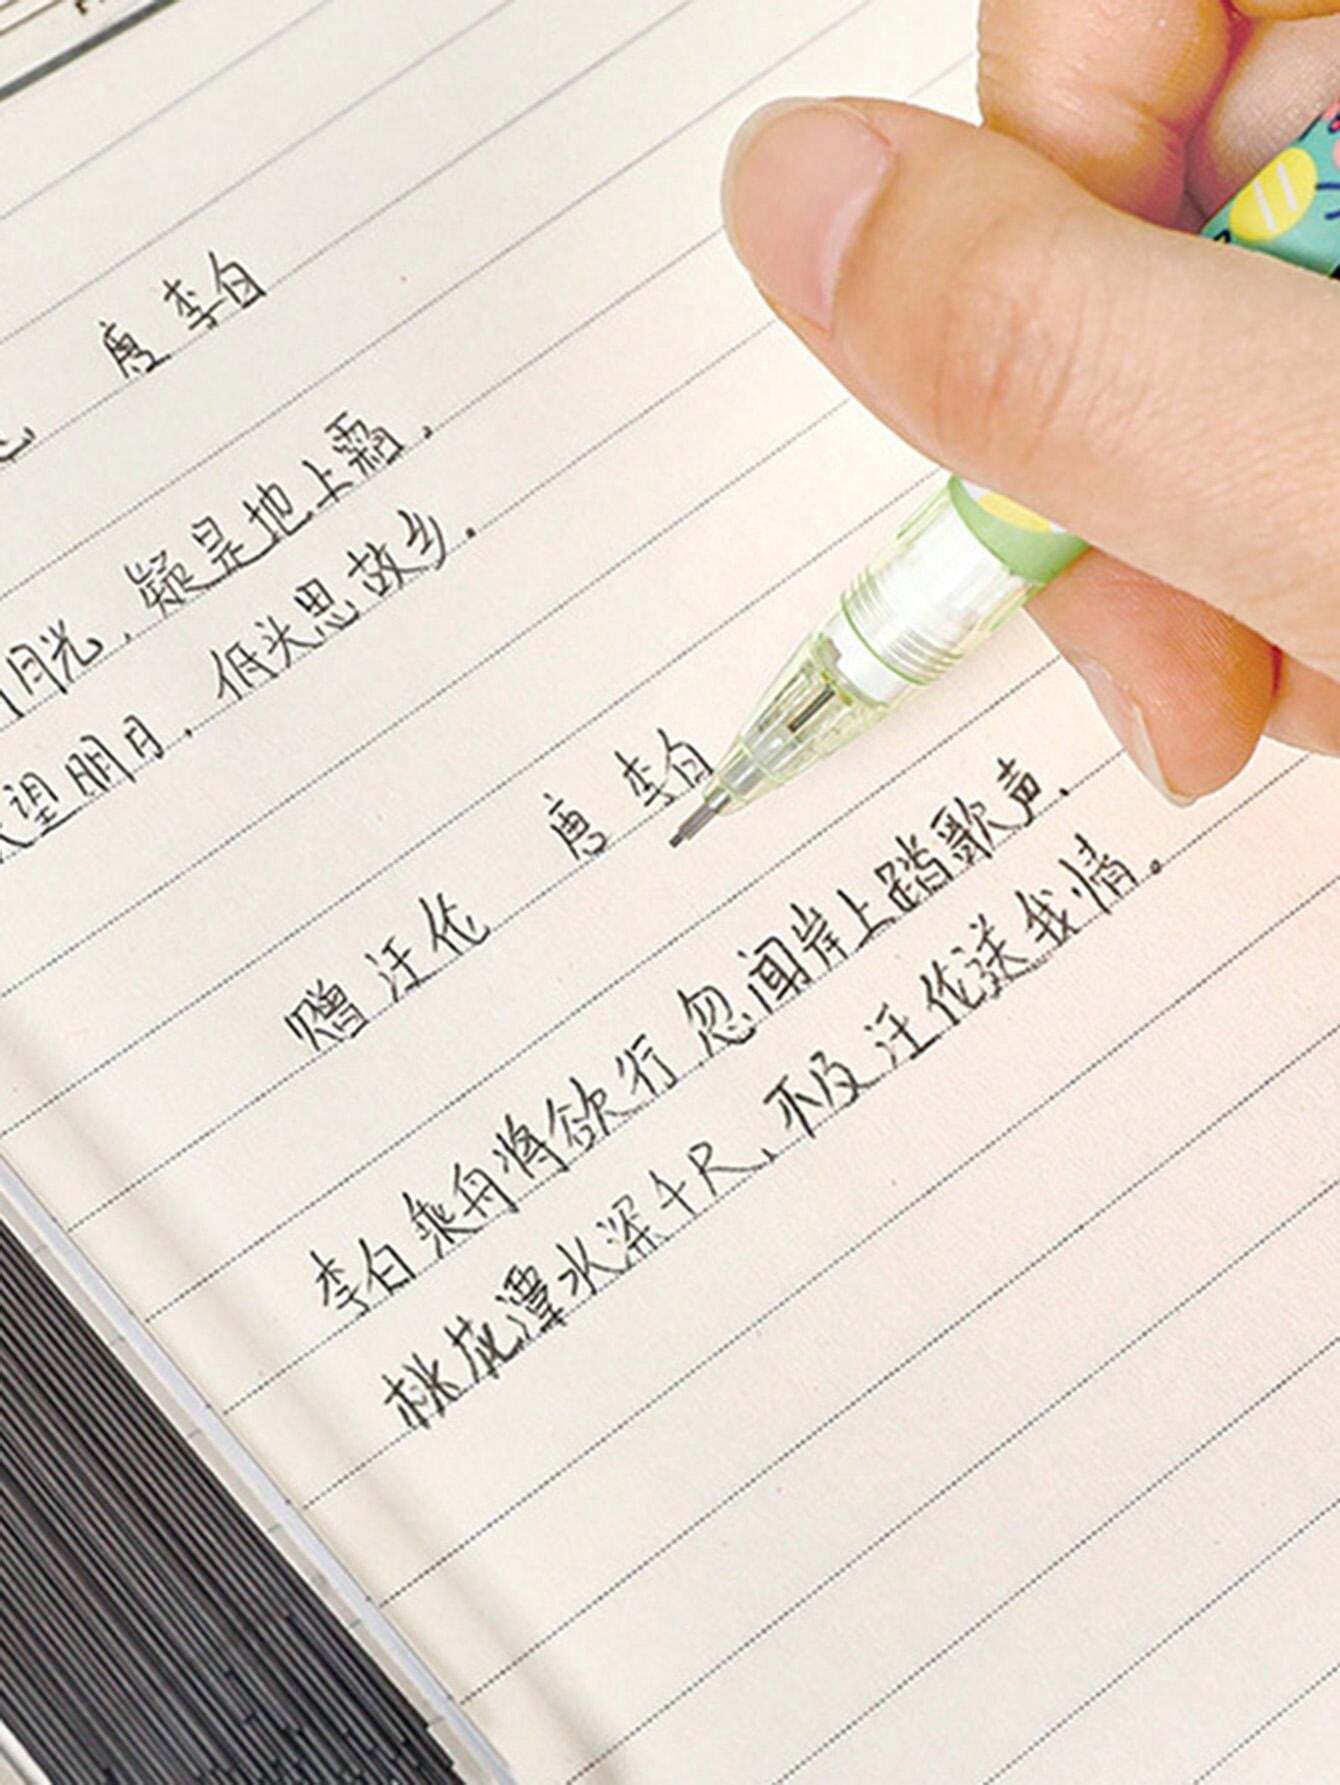 唐 李白
月光，疑是地上霜，
望明月，低头思故乡。
赠汪伦 唐 李白
李白乘舟将欲行 忽闻岸上踏歌声，
桃花潭水深千尺，不及汪伦送我情。